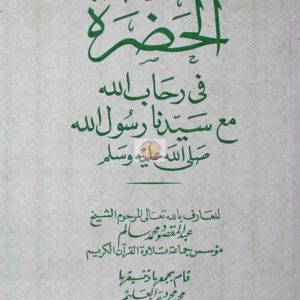 الحضرة
في رحاب الله
مع سيدنا رسول الله
صلى الله عليه وسلم
للعارف بالله تعالى المرحوم الشيخ
عبد المقصود محمد سالم
مؤسس جماعة تلاوة القرآن الكريم
قام بجمعها وتنسيقها